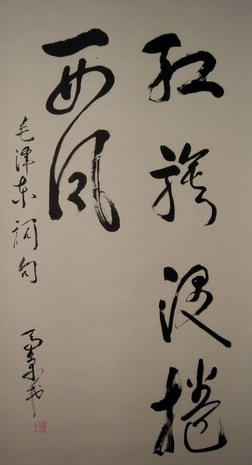 红旗漫捲
西风
毛泽东词句